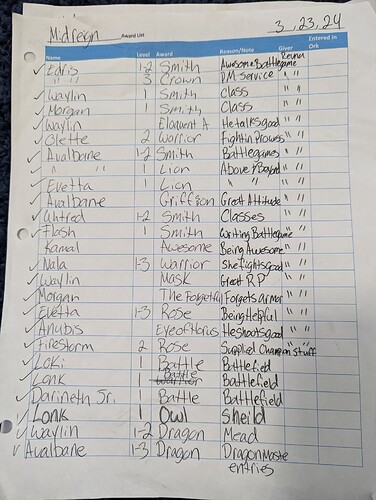 Midreign Award List 3,23,24
Name Level Award Reason/Note Giver Entered in Ork
Reyna
✓ Edris 1-2 Smith Awesome Battlegame
" " 3 Crown DM Service " "
✓ Waylin 1 Smith Class " "
✓ Morgan 1 Smith Class " "
✓ Waylin Eloquent A. He talks good " "
✓ Olette 2 Warrior Fightin Prowess " "
✓ Avalbane 1-2 Smith Battlegames " "
✓ " " 1 Lion Above & Beyond " "
✓ Evetta 1 Lion " " " "
✓ Avalbane Griffion Great Attitude " "
✓ Uhtred 1-2 Smith Classes " "
✓ Flash 1 Smith Writing Battlegame " "
Kamal Awesome Being Awesome " "
✓ Nala 1-3 Warrior She fights good " "
✓ Waylin Mask Great RP " "
✓ Morgan The Forgetful Forgets armor " "
✓ Evetta 1-3 Rose Being Helpful " "
✓ Anubis Eye of Horus He shoots good " "
✓ Firestorm 2 Rose Supplied Champion Stuff
✓ Loki 1 Battle Battlefield
✓ Lonk 1 Battle Battlefield
✓ Darineth Sr. 1 Battle Battlefield
✓ Lonk 1 Owl Sheild
✓ Waylin 1-2 Dragon Mead
✓ Avalbane 1-3 Dragon Dragon Maste
entries